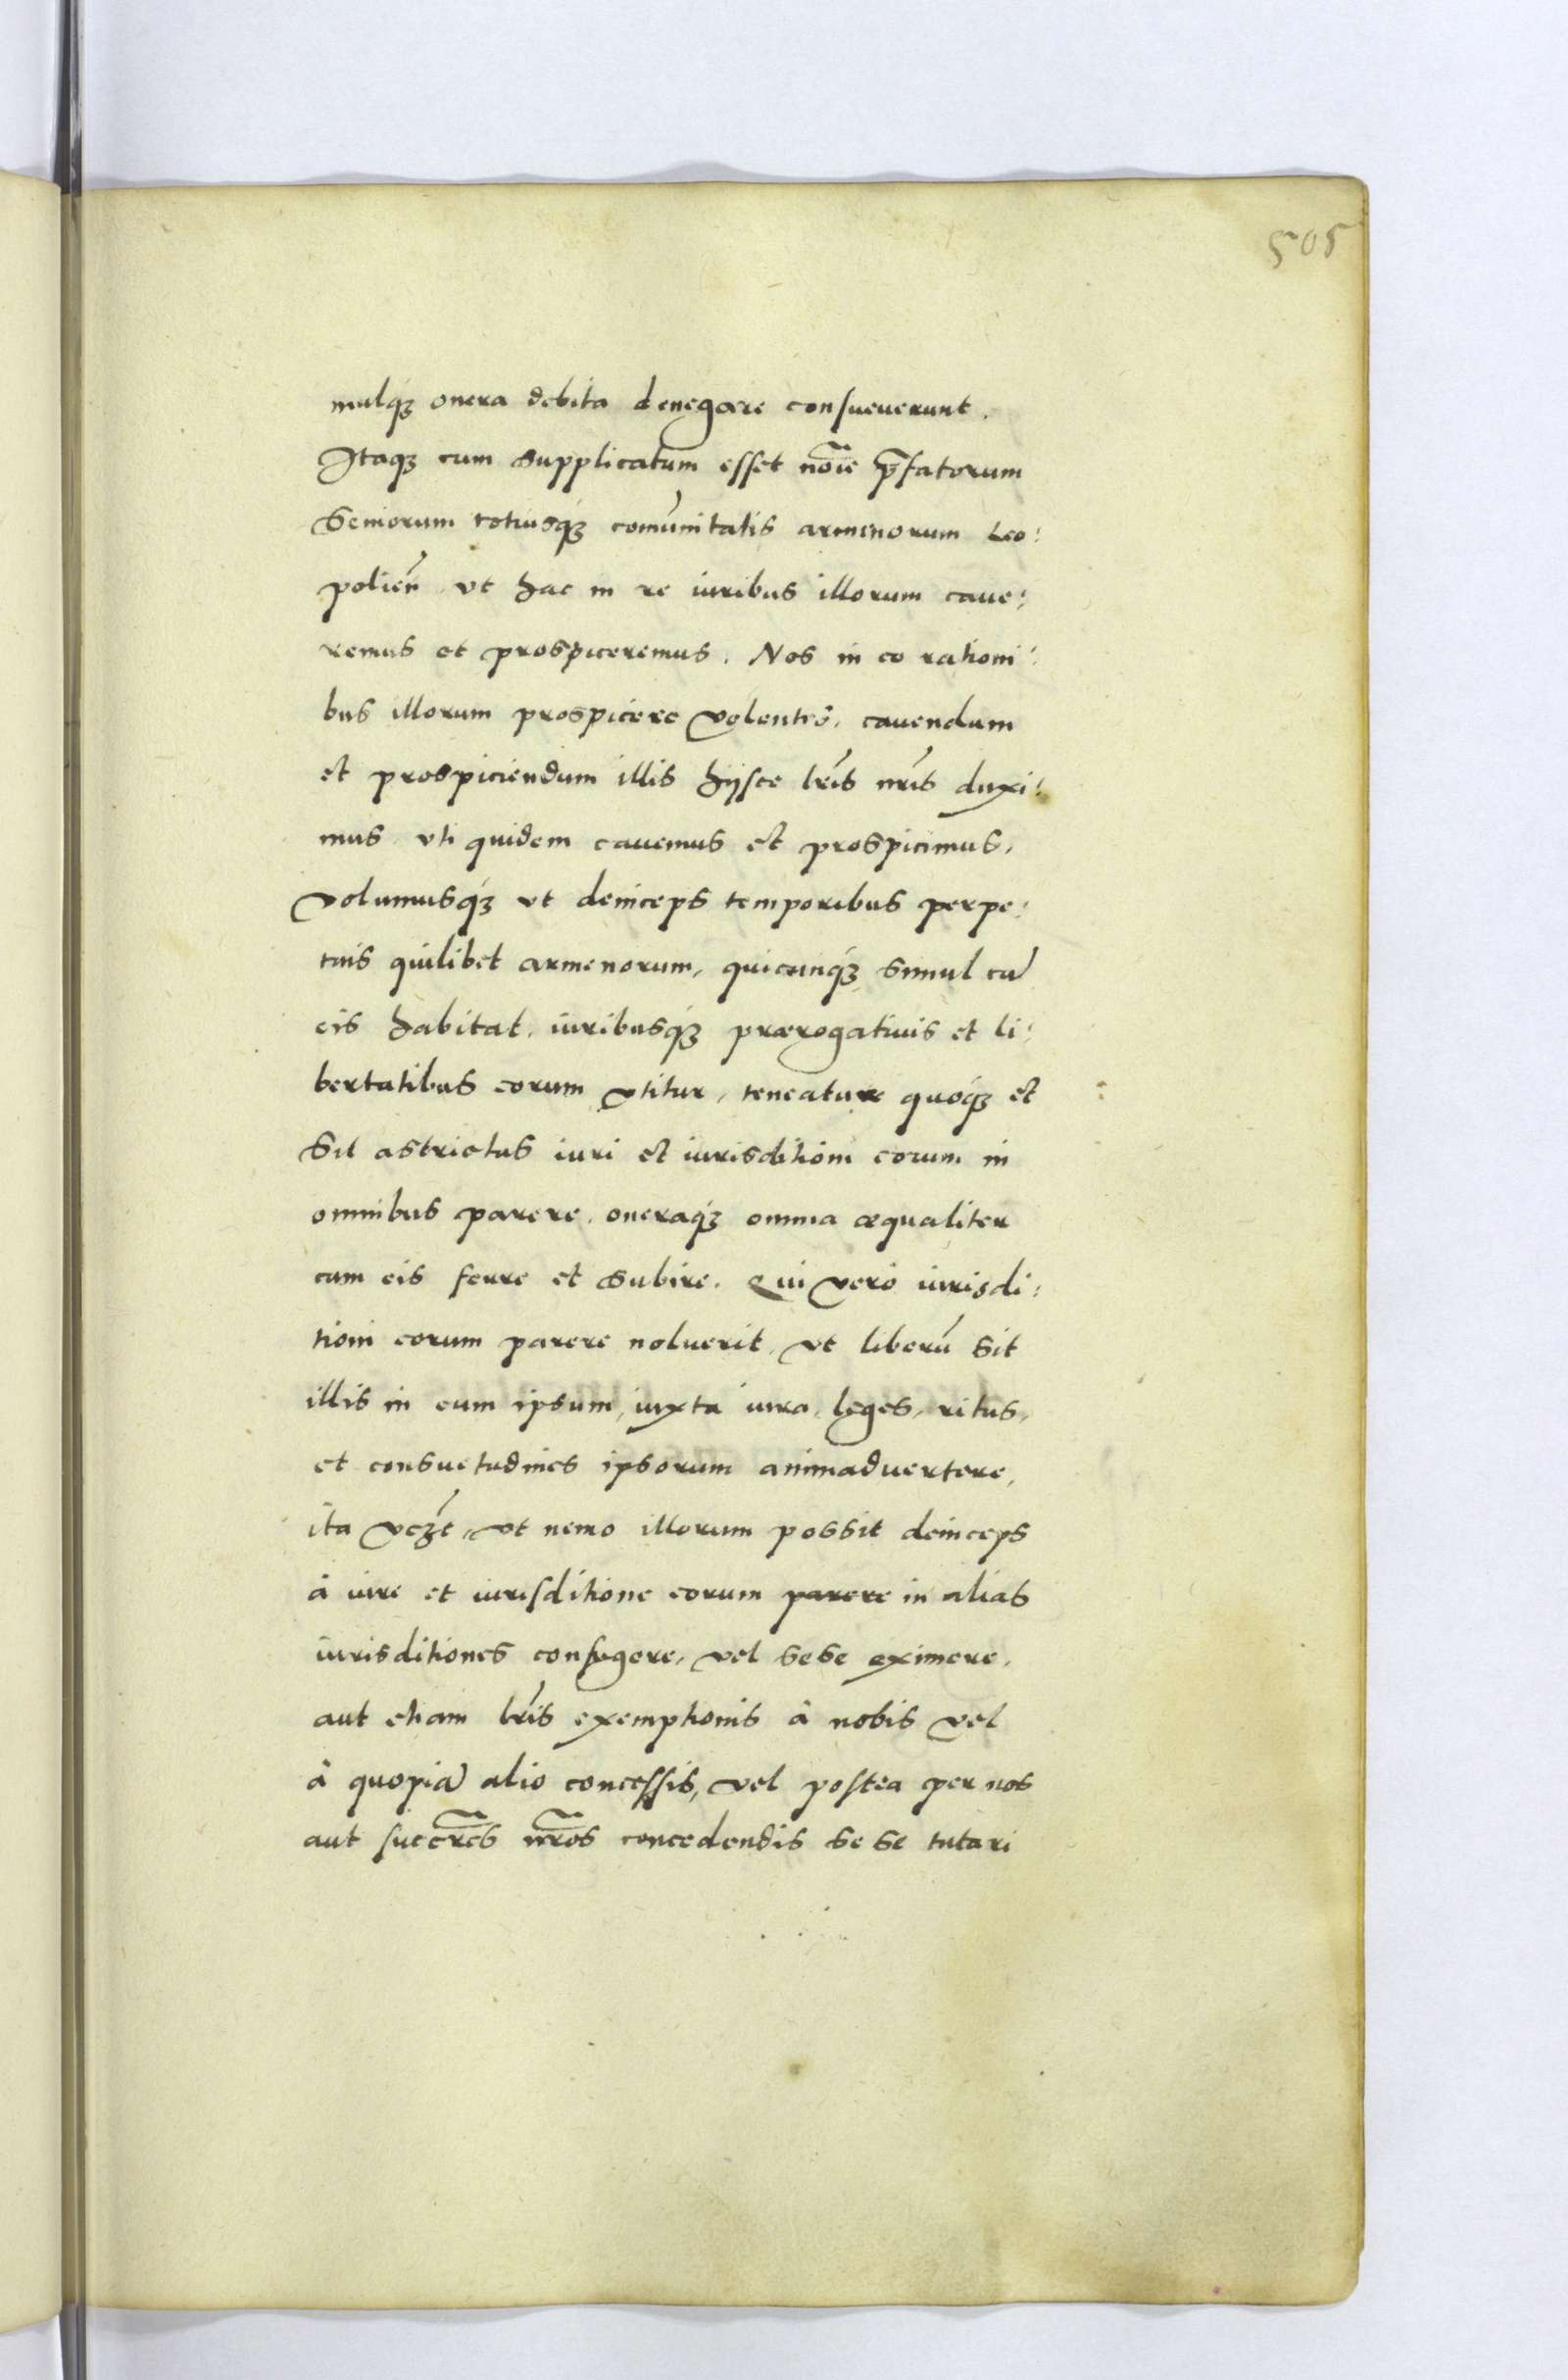 505
mulq́ꝫ onera debita denegare consueuerunt.
Itaqꝫ cum supplicatum esset no͠ie p͠fatorum
Seniorum totiusq́ꝫ comu͂nitatis armenorum Leo:
polień. vt hac in re iuribus illorum caue:
remus et prospiceremus. Nos in eo rationi:
bus illorum prospicere volentes, cauendum
et prospiciendum illis hijsce lr̃is nr̃is duxi:
mus. vti quidem cauemus et prospicimus,
volumusq́ꝫ vt deinceps temporibus perpe:
tuis quilibet armenorum, quicunq́ꝫ simul cũ
eis habitat. iuribusq́ꝫ prærogatiuis et li:
bertatibus eorum vtitur, teneatur quoq́ꝫ et
Sit astrictus iuri et iurisditioni eorum in
omnibus parere. oneraq́ꝫ omnia æqualiter
cum eis ferre et subire. Qui vero iurisdi:
tioni eorum parere noluerit, vt liberũ sit
illis in eum ipsum, iuxta iura, leges, ritus,
et consuetudines ipsorum animaduertere,
ita vcꝫt, vt nemo illorum possit deinceps
à iure et iurisditione eorum parere in alias
iurisditiones confugere, vel sese eximere,
aut etiam lr̃is exemptionis à nobis vel
à quopiã alio concessis, vel postea per nos
aut succr̃es nr̃os concedendis se se tutari